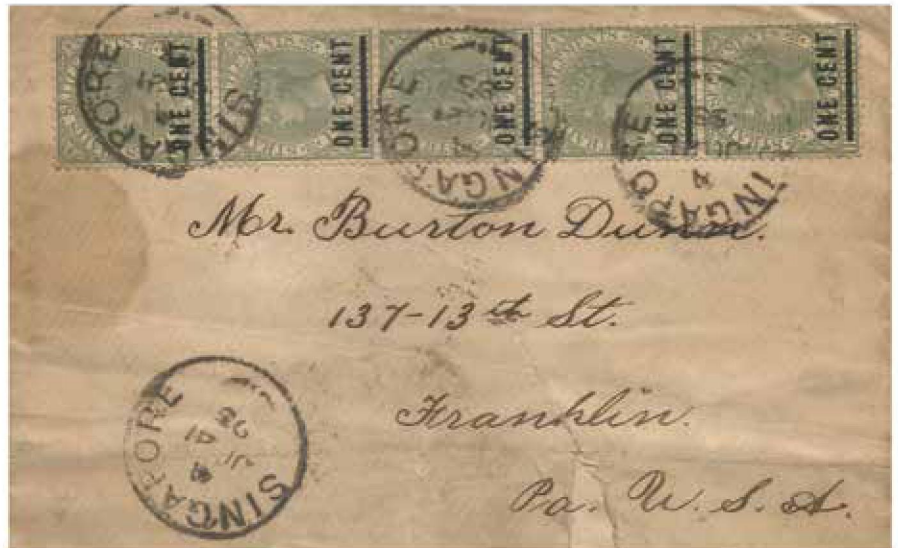 ONE CENT ONE CENT ONE CENT ONE CENT ONE CENT
SINGAPORE
SINGAPORE
SINGAPORE
Mr. Burton Dunn.
137-13th St.
Franklin.
Pa. U. S. A.
SINGAPORE